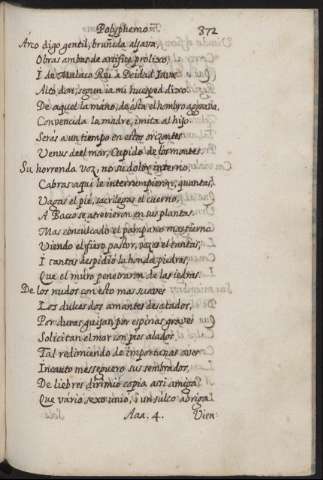 Polyphemo 372
Arco digo gentil, bruñida aljava,
Obras ambas de artifice prolixo,
I de Malaco Rei a Deidad Java
Alto don, segun ia mi huesped dixo.
De aquel la mano, de esta el hombro agrava,
Convencida la madre, imita al hijo.
Serás a un tiempo en estos orizontes
Venus de el mar, Cupido de los montes.
Su horrenda voz, no su dolor interno,
Cabras aqui le interrumpieron, quantas,
Vagas el pie, sacrilegas el cuerno,
A Baco se atrevieron en sus plantas.
Mas conculcado el pampano mas tierno
Viendo el fiero pastor, vozes el tantas,
I tantas despidió la honda piedras,
Que el muro penetraron de las iedras.
De los nudos con esto mas suaves
Los dulces dos amantes desatados,
Por duras guijas, por espinas graves
Solicitan el mar con pies alados.
Tal redimiendo de importunas aves
Incauto meseguero sus sembrados,
De liebres dirimió copia assi amiga
Que vario sexo unio, i un sulco abriga.
Aaa. 4. Vien